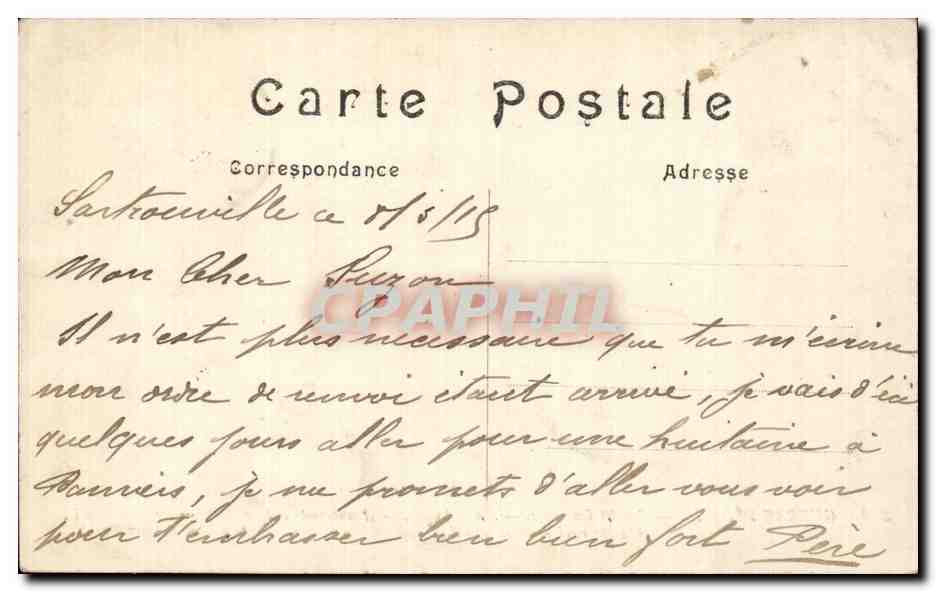 Carte Postale
Correspondance Adresse
Sartrouville ce 8/5/15
Mon Cher Puzon
CPAPHIL
Il n'est plus nécessaire que tu m'écrive
mon ordre de renvoi étant arrivé, je vais d'ici
quelques jours aller pour une huitaine à
Pamiers, je me promets d'aller vous voir
pour t'embrasser bien bien fort Père